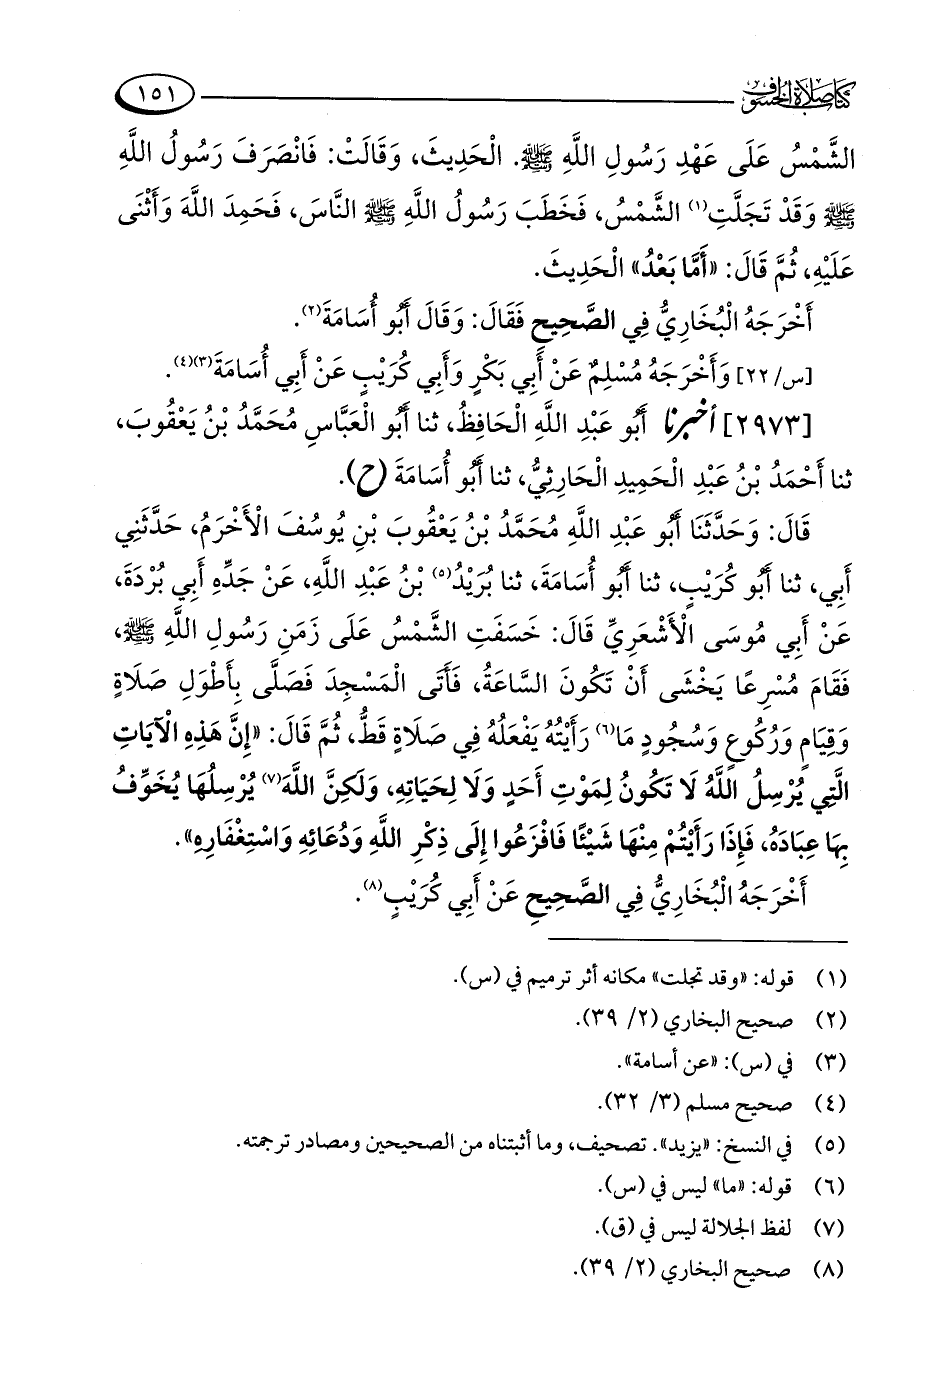 كتاب صلاة الخسوف
١٥١
الشَّمْسُ عَلَى عَهْدِ رَسُولِ اللَّهِ ﷺ. الْحَدِيثَ، وَقَالَتْ: فَانْصَرَفَ رَسُولُ اللَّهِ
ﷺ وَقَدْ تَجَلَّتِ(١) الشَّمْسُ، فَخَطَبَ رَسُولُ اللَّهِ ﷺ النَّاسَ، فَحَمِدَ اللَّهَ وَأَثْنَى
عَلَيْهِ، ثُمَّ قَالَ: «أَمَّا بَعْدُ» الْحَدِيثَ.
أَخْرَجَهُ الْبُخَارِيُّ فِي الصَّحِيحِ فَقَالَ: وَقَالَ أَبُو أُسَامَةَ(٢).
[س/ ٢٢] وَأَخْرَجَهُ مُسْلِمٌ عَنْ أَبِي بَكْرٍ وَأَبِي كُرَيْبٍ عَنْ أَبِي أُسَامَةَ(٣)(٤).
[٢٩٧٣] أخبرنا أَبُو عَبْدِ اللَّهِ الْحَافِظُ، ثنا أَبُو الْعَبَّاسِ مُحَمَّدُ بْنُ يَعْقُوبَ،
ثنا أَحْمَدُ بْنُ عَبْدِ الْحَمِيدِ الْحَارِثِيُّ، ثنا أَبُو أُسَامَةَ (ح).
قَالَ: وَحَدَّثَنَا أَبُو عَبْدِ اللَّهِ مُحَمَّدُ بْنُ يَعْقُوبَ بْنِ يُوسُفَ الْأَخْرَمُ، حَدَّثَنِي
أَبِي، ثنا أَبُو كُرَيْبٍ، ثنا أَبُو أُسَامَةَ، ثنا بُرَيْدُ(٥) بْنُ عَبْدِ اللَّهِ، عَنْ جَدِّهِ أَبِي بُرْدَةَ،
عَنْ أَبِي مُوسَى الْأَشْعَرِيِّ قَالَ: خَسَفَتِ الشَّمْسُ عَلَى زَمَنِ رَسُولِ اللَّهِ ﷺ،
فَقَامَ مُسْرِعًا يَخْشَى أَنْ تَكُونَ السَّاعَةُ، فَأَتَى الْمَسْجِدَ فَصَلَّى بِأَطْوَلِ صَلَاةٍ
وَقِيَامٍ وَرُكُوعٍ وَسُجُودٍ مَا(٦) رَأَيْتُهُ يَفْعَلُهُ فِي صَلَاةٍ قَطُّ، ثُمَّ قَالَ: «إِنَّ هَذِهِ الْآيَاتِ
الَّتِي يُرْسِلُ اللَّهُ لَا تَكُونُ لِمَوْتِ أَحَدٍ وَلَا لِحَيَاتِهِ، وَلَكِنَّ اللَّهَ(٧) يُرْسِلُهَا يُخَوِّفُ
بِهَا عِبَادَهُ، فَإِذَا رَأَيْتُمْ مِنْهَا شَيْئًا فَافْزَعُوا إِلَى ذِكْرِ اللَّهِ وَدُعَائِهِ وَاسْتِغْفَارِهِ».
أَخْرَجَهُ الْبُخَارِيُّ فِي الصَّحِيحِ عَنْ أَبِي كُرَيْبٍ(٨).
(١) قوله: «وقد تجلت» مكانه أثر ترميم في (س).
(٢) صحيح البخاري (٢/ ٣٩).
(٣) في (س): «عن أسامة».
(٤) صحيح مسلم (٣/ ٣٢).
(٥) في النسخ: «يزيد». تصحيف، وما أثبتناه من الصحيحين ومصادر ترجمته.
(٦) قوله: «ما» ليس في (س).
(٧) لفظ الجلالة ليس في (ق).
(٨) صحيح البخاري (٢/ ٣٩).